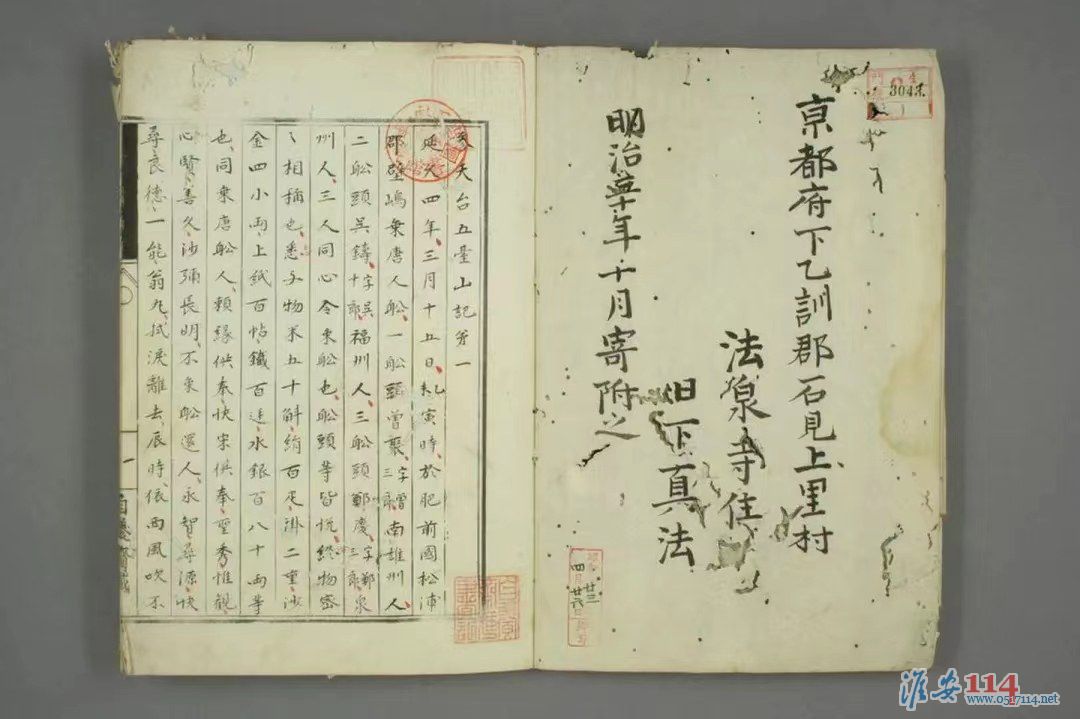 京都府下乙訓郡石見上里村
法泉寺住
日下真法
明治廿年十月寄附之
3043
廿三
四月廿
参天台五臺山記第一
延久四年三月十五日乙寅時於肥前國松浦
郡壁嶋乗唐人舩一舩頭曽聚字曽三郎南雄州人
二舩頭呉鑄字呉十郎福州人三舩頭鄭慶字鄭三郎泉
州人三人同心令乗舩也舩頭等皆悦給物密
〻相稱也悉与物米五十斛絹百疋褂二重沙
金四小両上紙百帖鐵百廷水銀百八十両等
也同乗唐舩人頼縁供奉快宗供奉聖秀惟観
心賢善久沙弥長明不乗舩還人永智尋源快
尋良徳一能翁丸拭涙離去辰時依西風吹不
一
淮安114
www.0517114.net